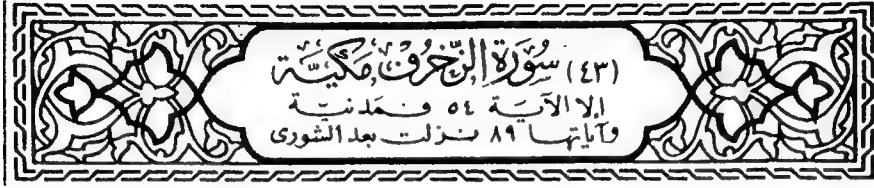 (٤٣) سُورَةُ الزُّخرُفِ مَكيَّة
إلا الآيـــة ٥٤ فـمَدنيـة
وآياتهـا ٨٩ نـزلت بعد الشورى